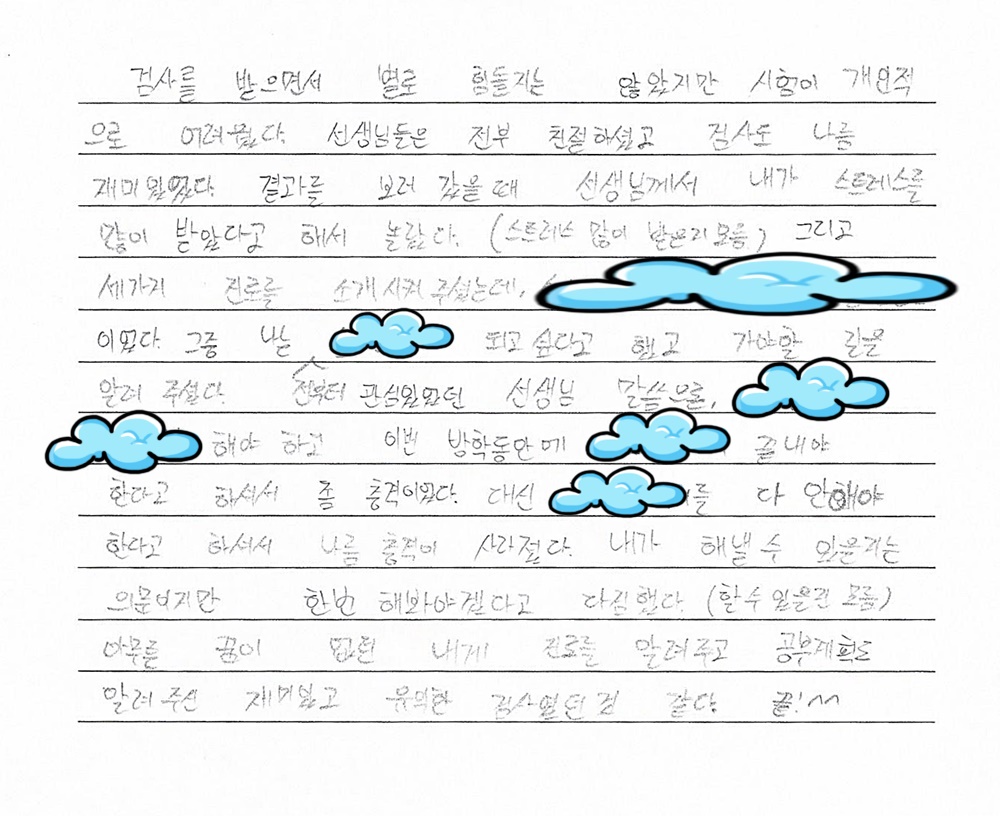 검사를 받으면서 별로 힘들지는 않았지만 시험이 개인적
으로 어려웠다. 선생님들은 전부 친절하셨고 검사도 나름
재미있었다. 결과를 보러 갔을 때 선생님께서 내가 스트레스를
많이 받았다고 해서 놀랐다. (스트레스 많이 받은지 모름) 그리고
세가지 진로를 소개시켜 주셨는데,
이었다. 그중 나는 되고 싶다고 했고 가야할 길을
알려 주셨다. 전부터 관심있었던 선생님 말씀으론,
해야 하고 이번 방학동안에 끝내야
한다고 하셔서 좀 충격이었다. 대신 를 다 안해야
한다고 하셔서 나름 충격이 사라졌다. 내가 해낼 수 있을지는
의문이지만 한번 해봐야겠다고 다짐했다. (할 수 있을런 모름)
아무른 꿈이 없던 내게 진로를 알려주고 공부계획도
알려 주신 재미있고 유익한 검사였던 것 같다. 끝! ^^